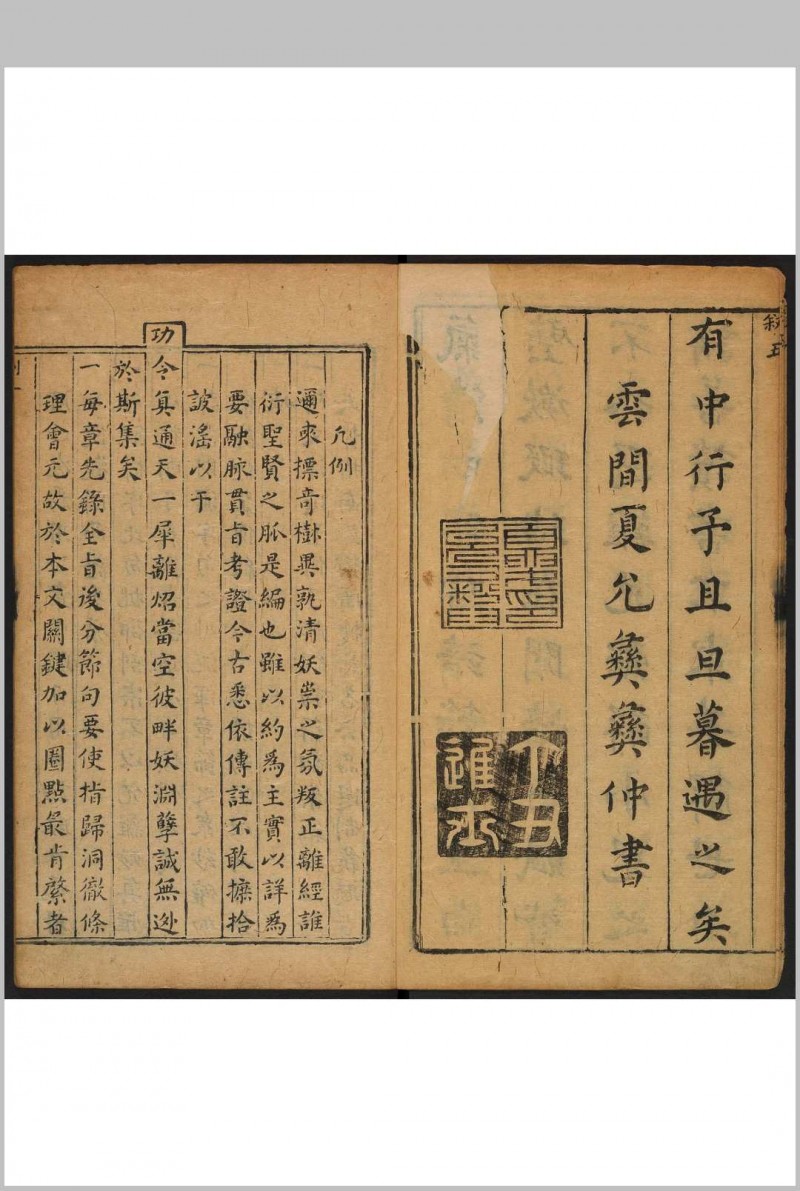 敘五
有中行予且旦暮遇之矣
雲間夏允彝彝仲書
丁丑進士
凡例
邇來摽奇樹異孰清妖祟之氛叛正離經誰
衍聖賢之脈是編也雖以約爲主實以詳爲
要融脉貫旨考證今古悉依傳註不敢摭拾
詖滛以干
功
令真通天一犀離炤當空彼畔妖淵孽誠無逊
於斯集矣
一每章先錄全旨後分節句要使指歸洞徹條
理會元故於本文關鍵加以圈點最肯綮者